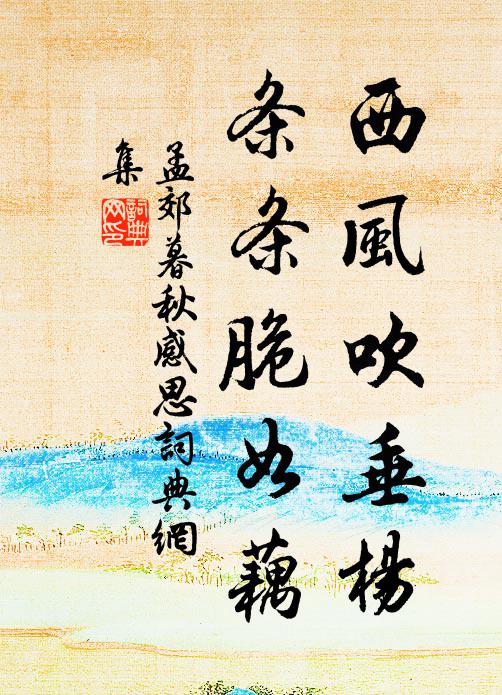 西風吹垂楊
条条脆如藕
孟郊暮秋感思詞典網
集
詞典
网印